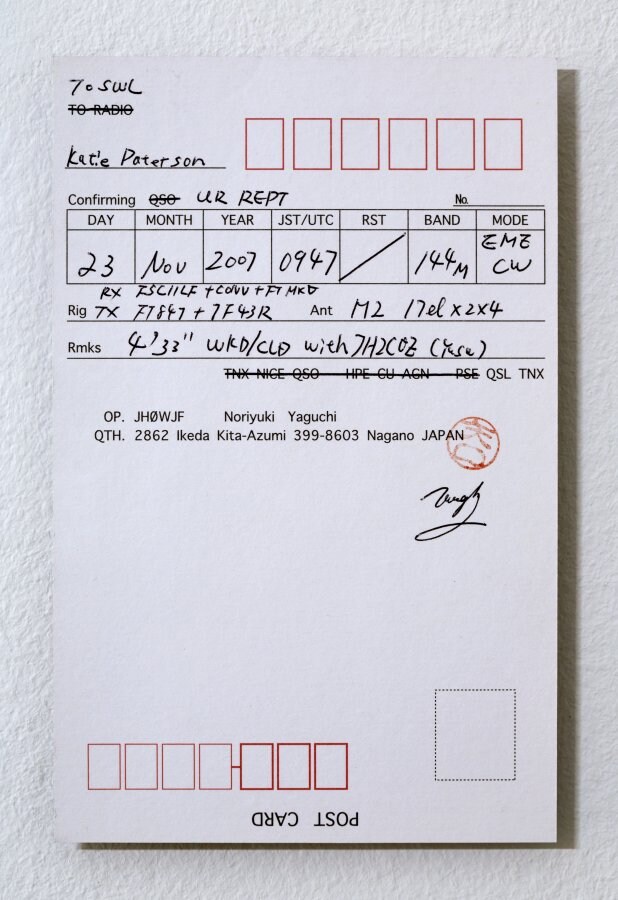 To SWL
TO RADIO
Katie Paterson
Confirming QSO UR REPT No.
DAY MONTH YEAR JST/UTC RST BAND MODE
23 Nov 2007 0947 / 144M EME CW
RX + CONV +
Rig TX FT847 + TF43R Ant M2 17el x2x4
Rmks 4'33" WKD/CLD with JH2COZ
TNX NICE QSO HPE CU AGN PSE QSL TNX
OP. JHØWJF Noriyuki Yaguchi
QTH. 2862 Ikeda Kita-Azumi 399-8603 Nagano JAPAN
POST CARD